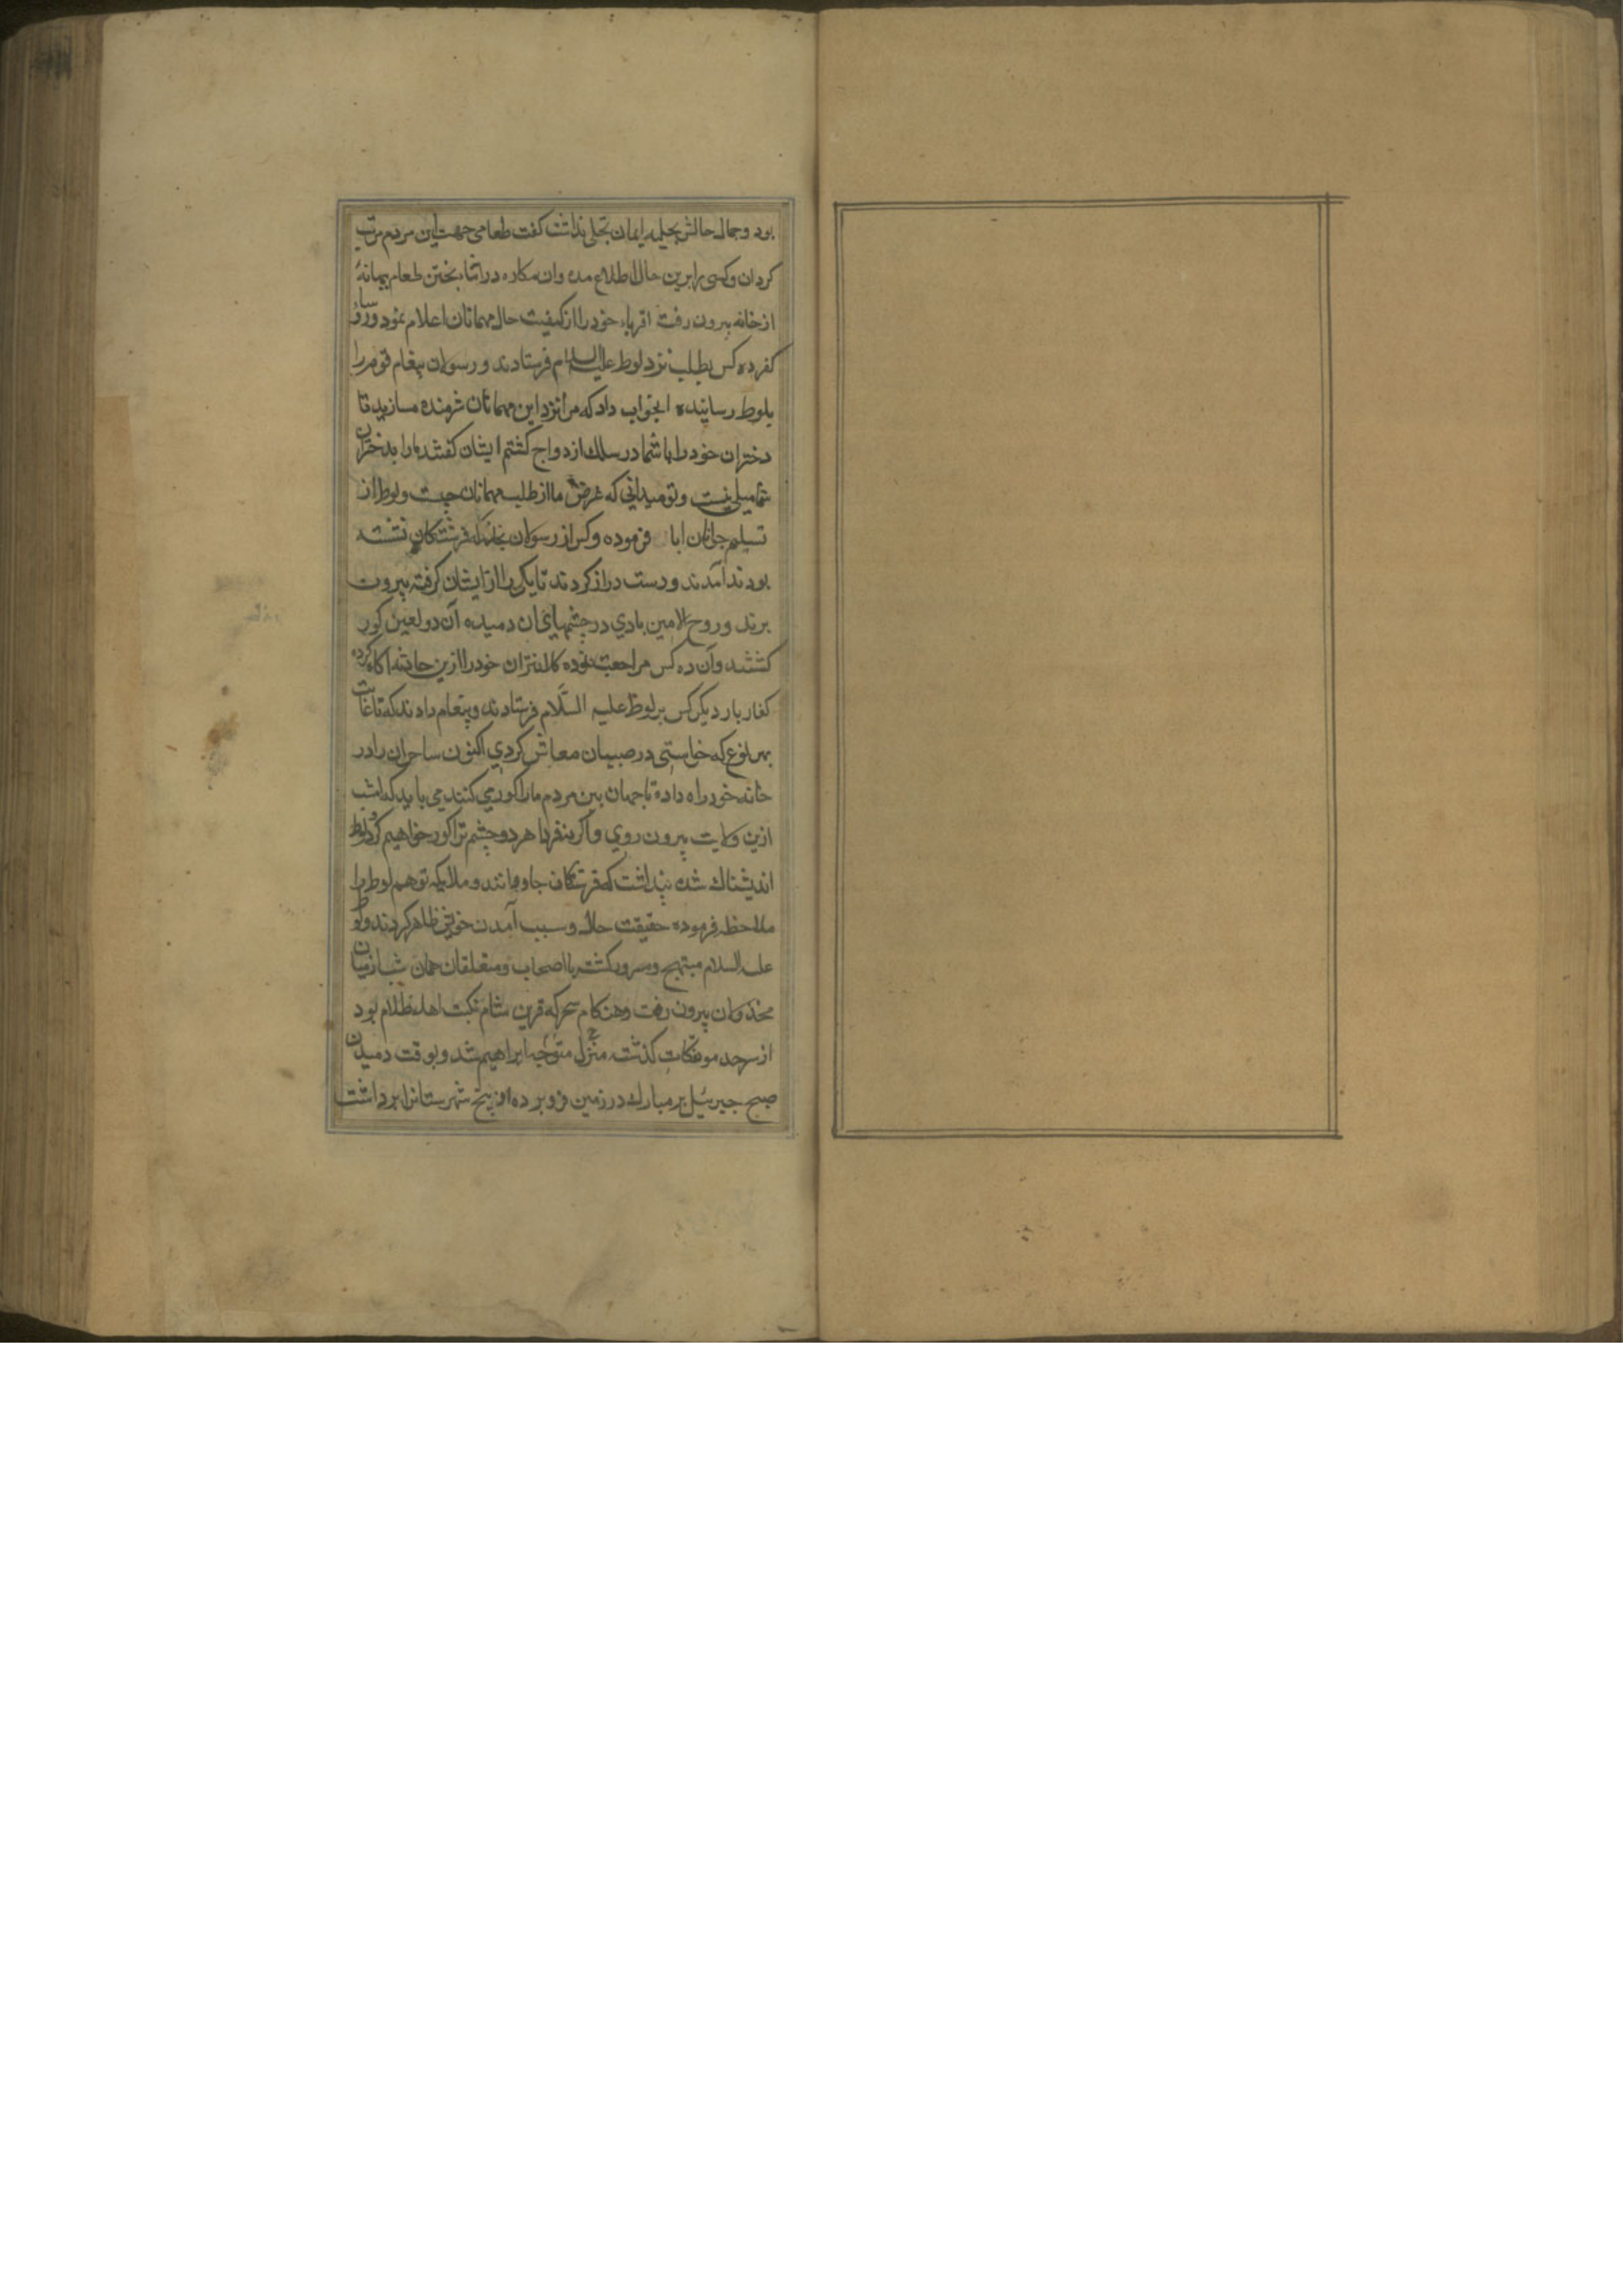 بود و جمال حالش بحلیه ایمان تجلی نداشت کفت طعامی جهت این مردم مرتب
کردان و کسی را برین حال اطلاع مده و ان مکاره در اثنا پختن طعام ببهانهٔ
از خانه بیرون رفت اقرباء خود را از کیفیت حال مهمانان اعلام نمود و رؤسا
کفر ده کس بطلب نزد لوط علیه السلام فرستادند و رسولان پیغام قوم را
بلوط رسانیده ا بجواب داد که مرا نزد این مهمانان شرمنده مسازید تا
دختران خود را با شما در سلک ازدواج کشم ایشان کفتند ما را بدختران
شما میلی نیست و تو میدانی که غرض ما از طلب مهمانان چیست و لوط از
تسلیم جوانان ابا فرموده و کس از رسولان بخانه که فرشتکان نشسته
بودند آمدند و دست دراز کردند تا یکی را از ایشان کرفته بیرون
برند و روح الامین بادی در چشمهای ان دمیده آن دو لعین کور
کشتند و آن ده کس مراجعت نموده کلانتران خود را ازین حادثه اکاه کرده
کفار بار دیکر کس بر لوط علیه السلام فرستادند و پیغام دادند که تا غایت
بهر نوع که خواستی در میان معاش کردی اکنون ساحران را در
خانه خود راه داده تا جهان بین مردم ما را کور می کنند می باید که امشب
ازین ولایت بیرون روی و اکر نه فردا هر دو چشم ترا کور خواهیم کرد و لوط
اندیشناک شده پنداشت که فرشتکان جادوانند و ملایکه توهم لوط را
ملاحظه فرموده حقیقت حال و سبب آمدن خویش ظاهر کردند و لوط
علیه السلام مبتهج و مسرور کشته با اصحاب و متعلقان همان شب از میان
مخذولان بیرون رفت و هنکام سحر که قرین شام نکبت اهل ظلام بود
از سرحد موتفکات کذشته منزل متوجه ابراهیم شد و بوقت دمیدن
صبح جبرئیل پر مبارک در زمین فرو برده از بیخ شهرستانرا برداشت